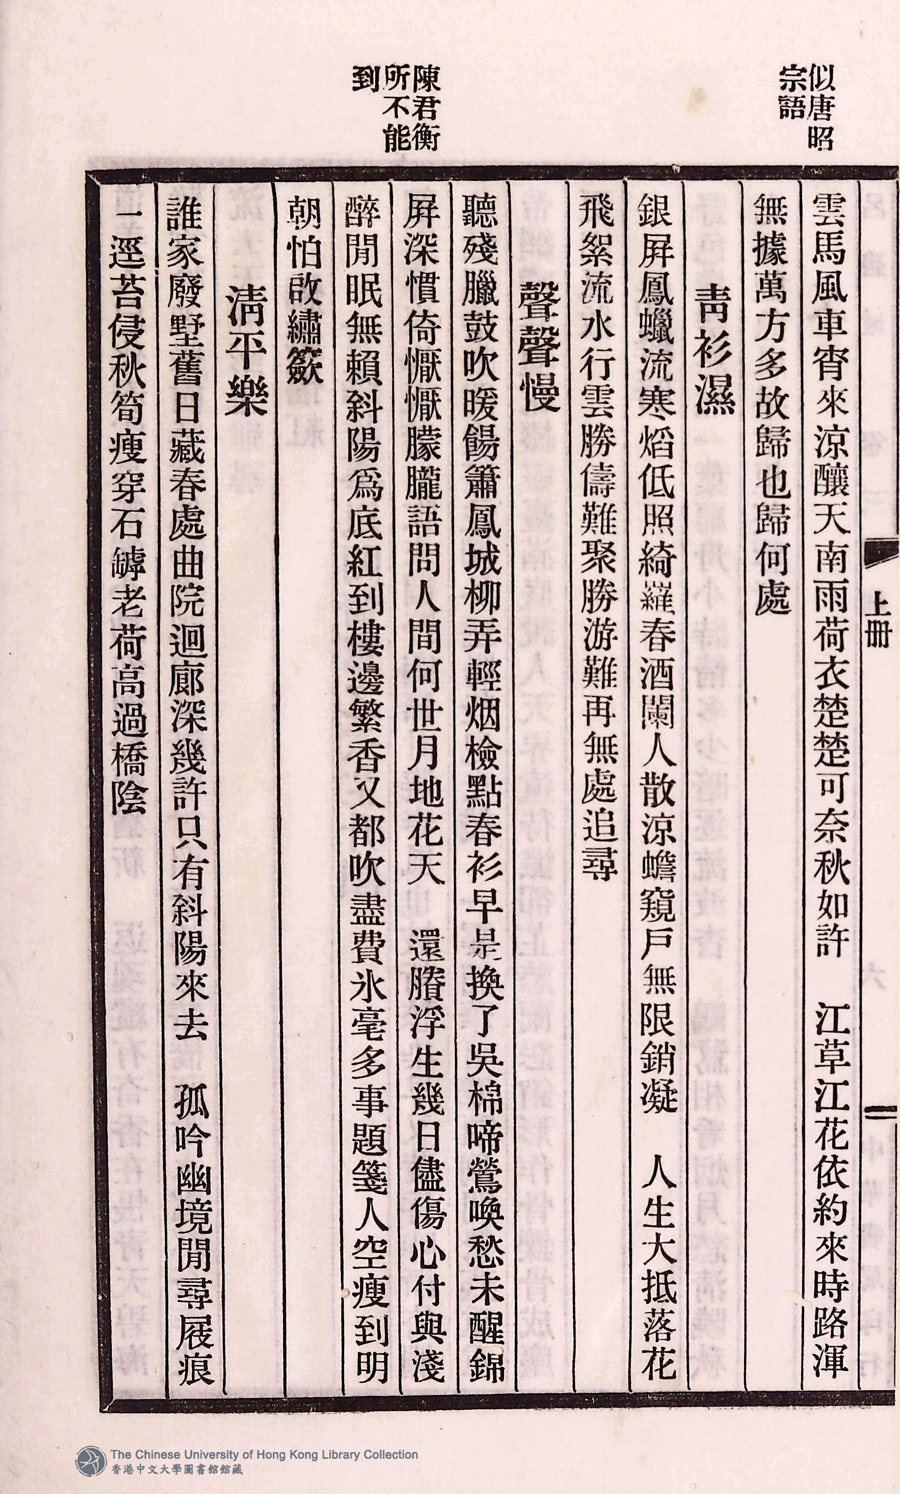 似唐昭
宗語
陳君衡
所不能
到
上冊
雲馬風車宵來涼釀天南雨荷衣楚楚可奈秋如許　江草江花依約來時路渾
無據萬方多故歸也歸何處
青衫濕
銀屏鳳蠟流寒熖低照綺羅春酒闌人散涼蟾窺戶無限銷凝　人生大抵落花
飛絮流水行雲勝儔難聚勝游難再無處追尋
聲聲慢
聽殘臘鼓吹暖餳簫鳳城柳弄輕烟檢點春衫早是換了吳棉啼鶯喚愁未醒錦
屏深慣倚懨懨朦朧語問人間何世月地花天　還賸浮生幾日儘傷心付與淺
醉閒眠無賴斜陽爲底紅到樓邊繁香又都吹盡費氷毫多事題箋人空瘦到明
朝怕啟繡簽
淸平樂
誰家廢墅舊日藏春處曲院迴廊深幾許只有斜陽來去　孤吟幽境閒尋屐痕
一逕苔侵秋筍瘦穿石罅老荷高過橋陰
The Chinese University of Hong Kong Library Collection
香港中文大學圖書館館藏